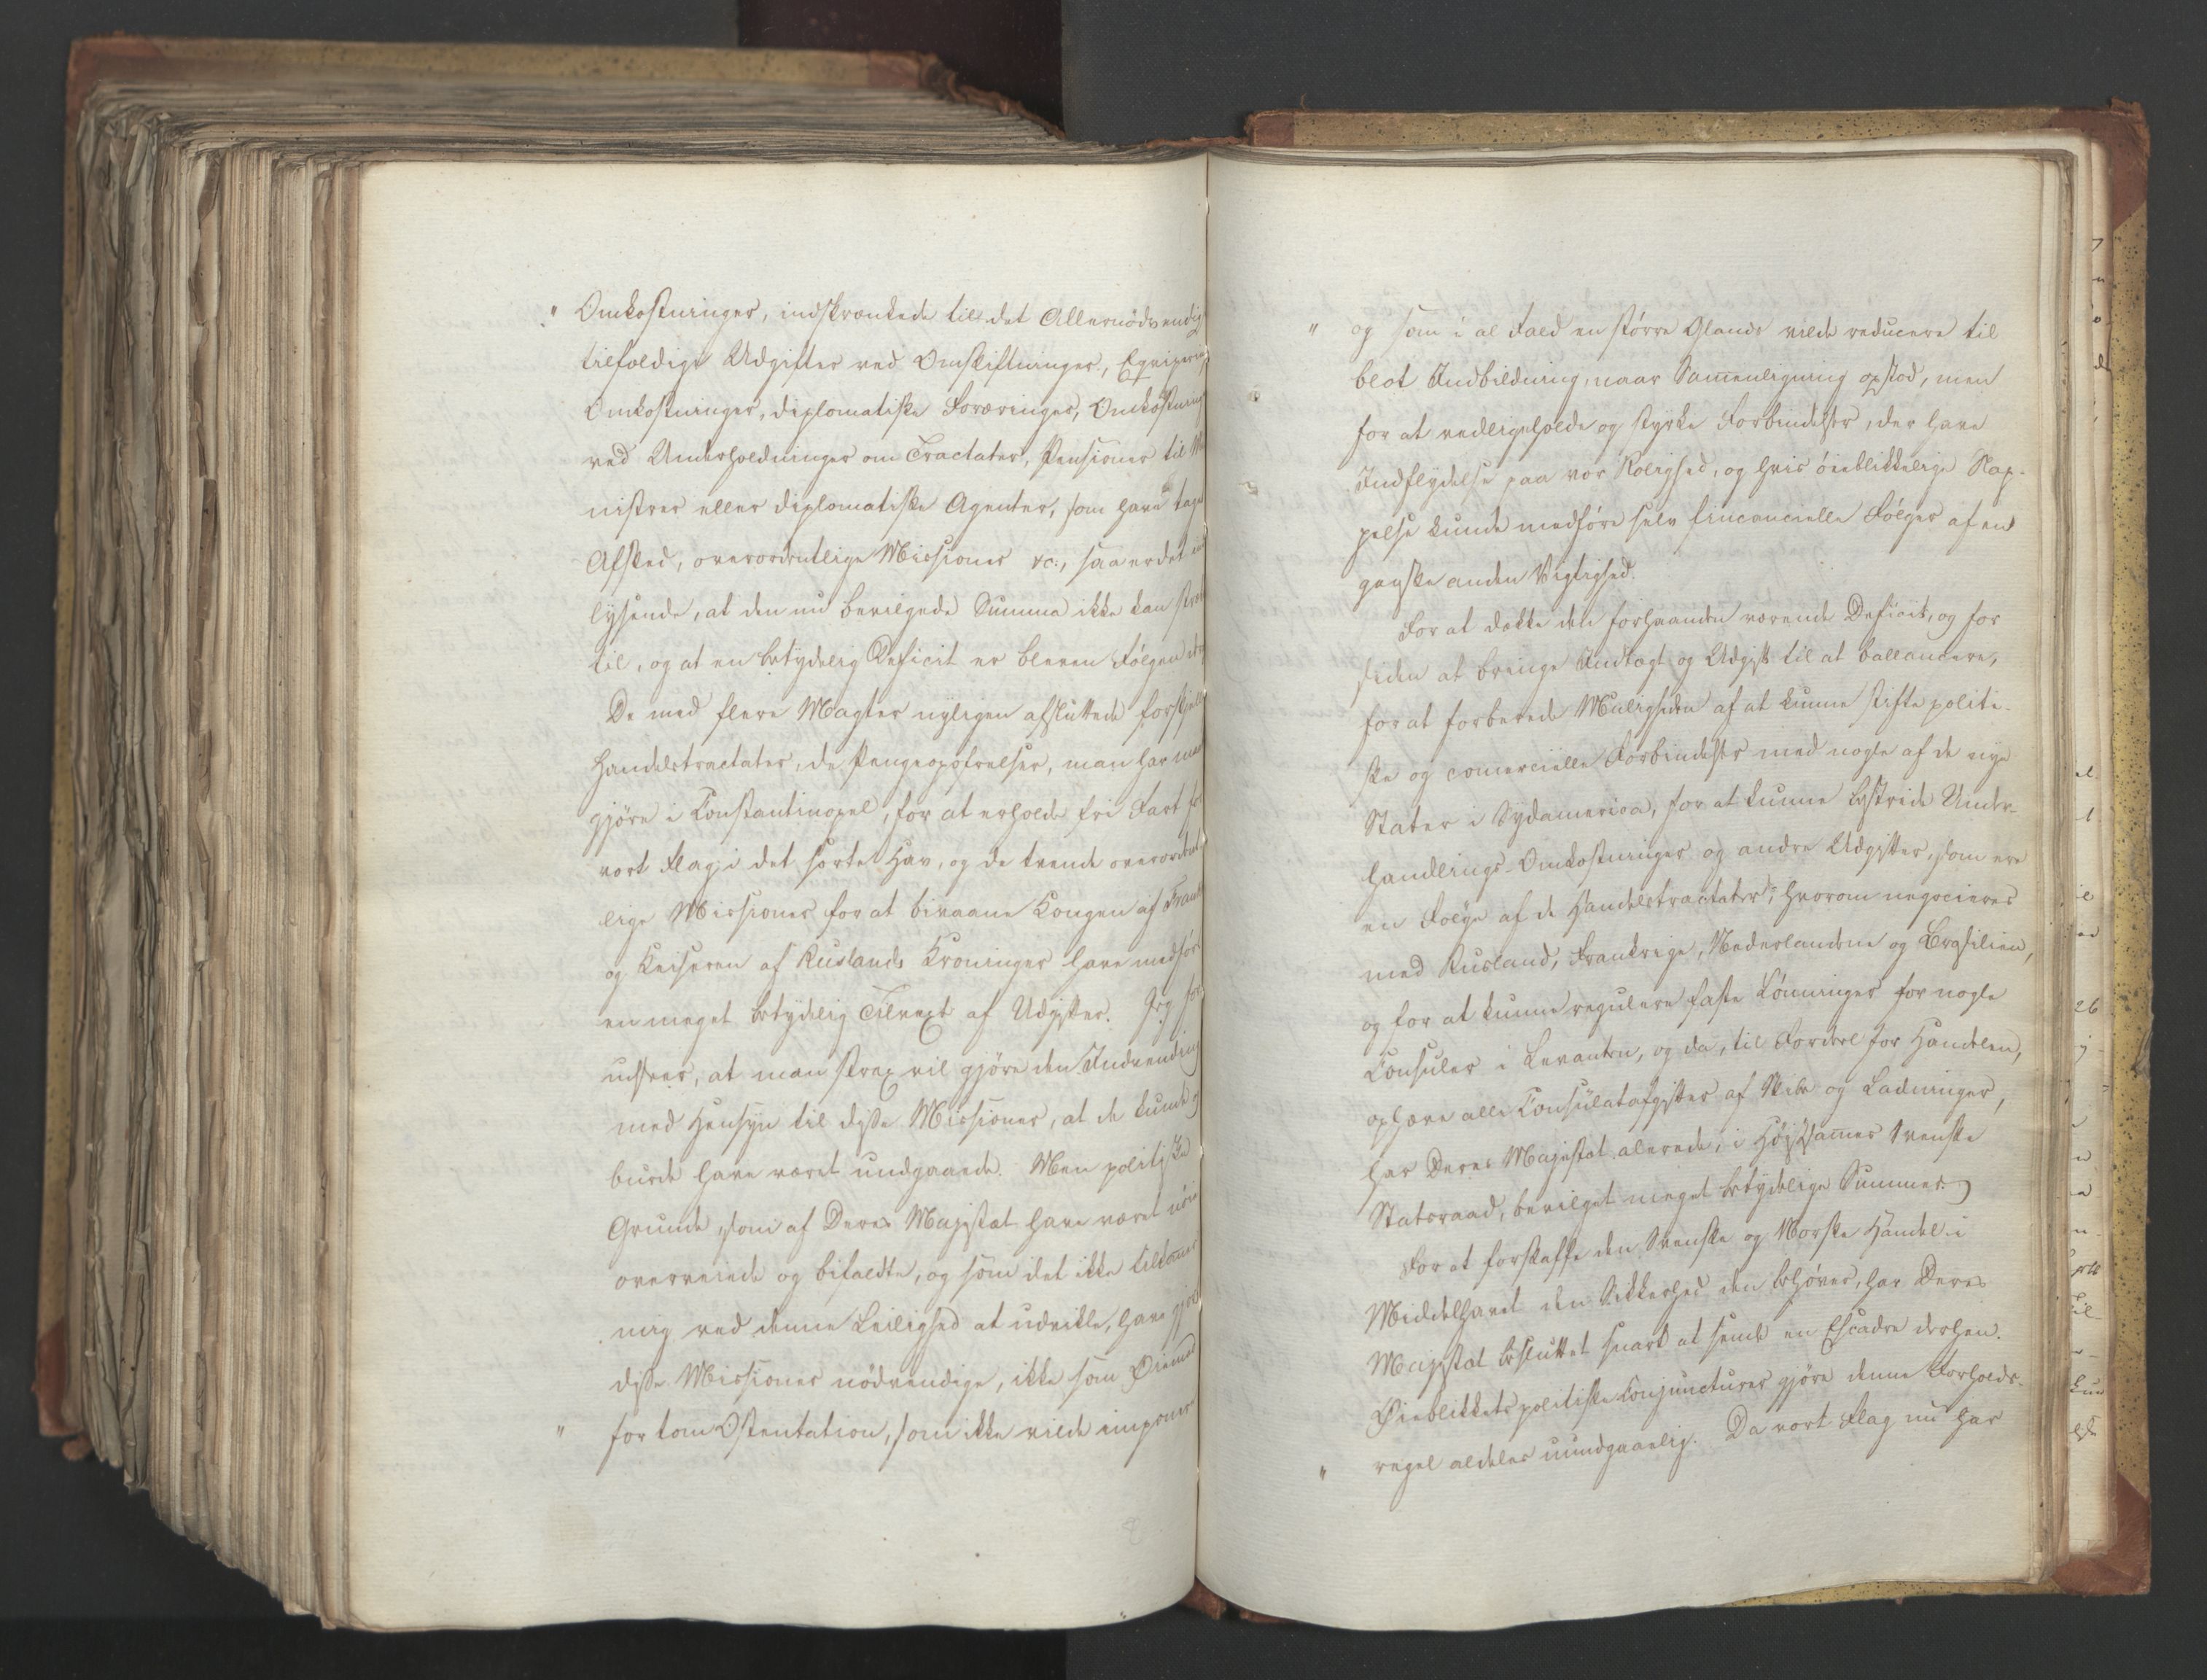 " Omkostninger, indskrænkede til det Allernødvendig
tilfældige Udgifter ved Omskiftninger, Equiperin
Omkostninger, diplomatiske Foræringer, Omkostning
ved Underholdninger om Tractater, Pensioner til Mi
nistrer eller diplomatiske Agenter, som have tag
Afsked, overordentlige Missioner &c:, saa er det
lysende, at den nu bevilgede Summa ikke kan
til, og at en betydelig Deficit er bleven Følgen
De med flere Magter nyligen afsluttede forskjell
Handelstractater, de Pengeopofrelser, man har
gjöre i Constantinopel, for at erholde fri Fart
vort Flag i det sorte Hav, og de trende overordent
lige Missioner for at bivaane Kongen af Frank
og Keiseren af Ruslands Kroninger have medför
en meget betydelig Tilvext af Udgifter. Jeg for
udseer, at man strax vil gjöre den Indvending
med Hensyn til disse Missioner, at de kunde
burde have været undgaaede. Men politiske
Grunde, som af Deres Majestæt have været nöie
overveiede og bifaldte, og som det ikke tilkommer
mig ved denne Leilighed at udvikle, have gjort
disse Missioner nödvendige, ikke som Öiemed
" for tom Ostentation, som ikke vilde imponere
" og som i al Fald en större Glands vilde reducere til
blot Indbildning, naar Sammenligning opstod, men
for at vedligeholde og styrke Forbindelser, der have
Indflydelse paa vor Rolighed, og hvis öieblikkelige Slap-
pelse kunde medföre selv financielle Fölger af en
ganske anden Vigtighed.
For at dække den forhaanden værende Deficit, og for
siden at bringe Indtægt og Udgift til at ballancere,
for at forberede Muligheden af at kunne stifte politi-
ske og comercielle Forbindelser med nogle af de nye
Stater i Sydamerica, for at kunne bestride Under-
handlings-Omkostninger og andre Udgifter, som ere
en Fölge af de Handelstractater, hvorom negocieres
med Rusland, Frankrige, Nederlandene og Brasilien,
og for at kunne regulere faste Lönninger for nogle
Consuler i Levanten, og da, til Fordeel for Handelen,
ophæve alle Consulatafgifter af Skibe og Ladninger,
har Deres Majestæt allerede, i Höistsammes Svenske
Statsraad, bevilget meget betydelige Summer.
For at forskaffe den Svenske og Norske Handel i
Middelhavet den Sikkerhed den behöver, har Deres
Majestæt besluttet snart at sende en Escadre derhen.
Öieblikkets politiske Conjuncturer gjöre denne Forholds-
" regel aldeles uundgaaelig. Da vort Flag nu har